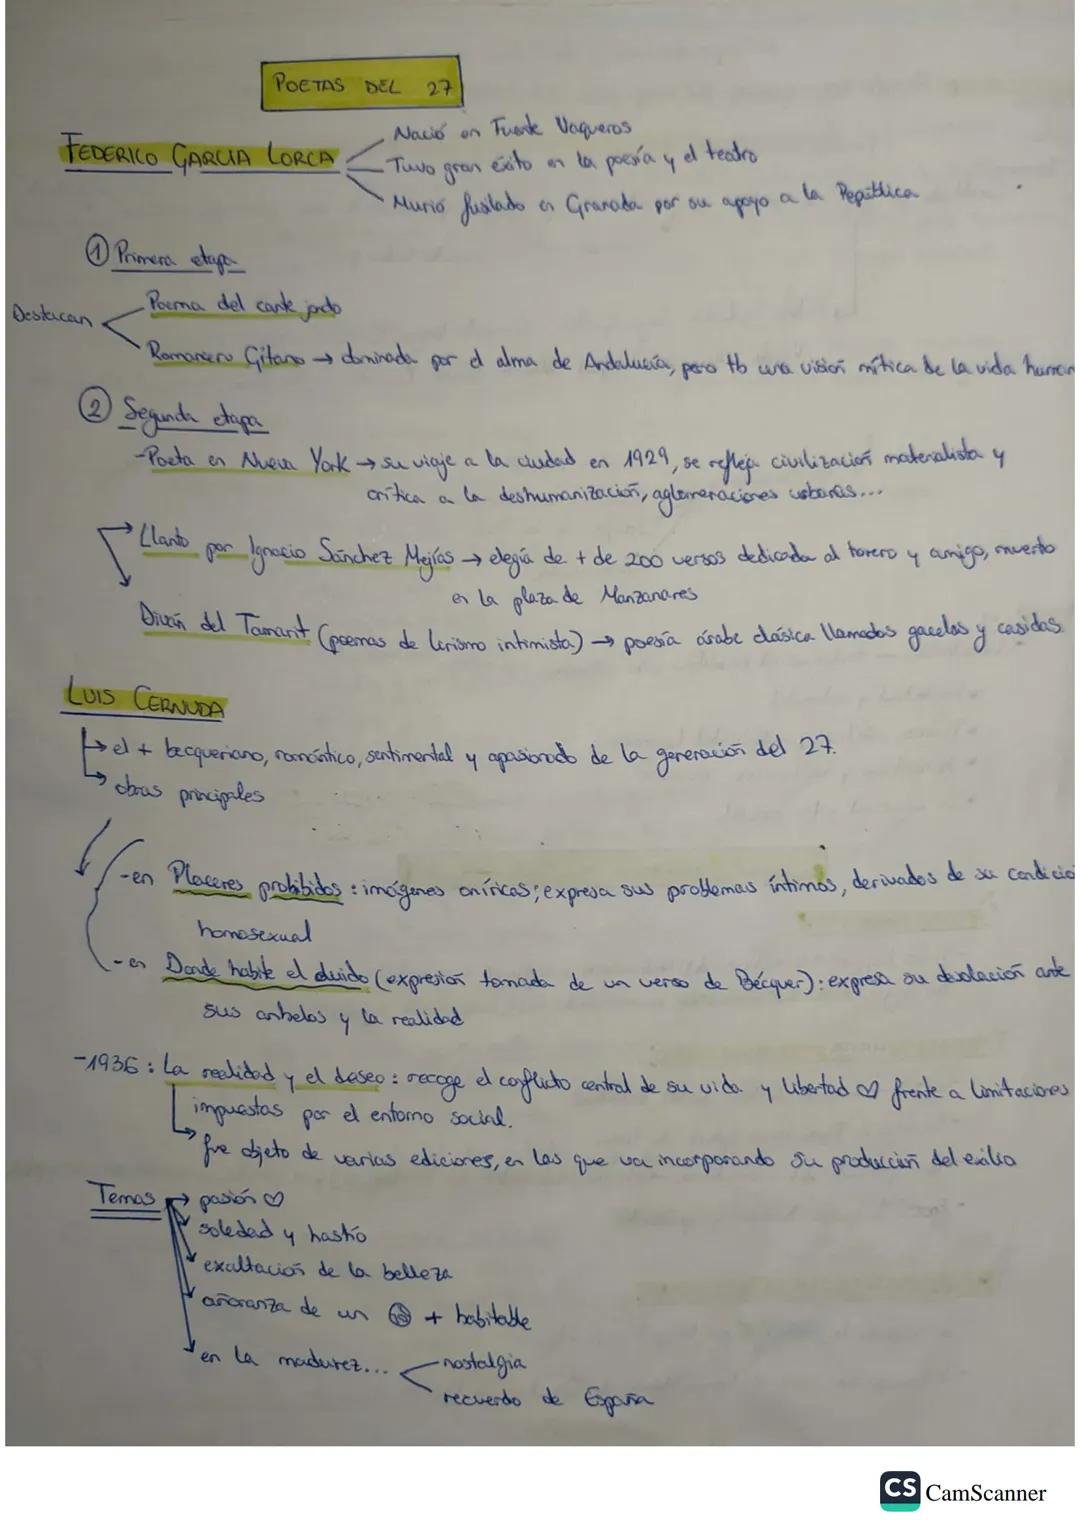 POETAS DEL 27
FEDERICO GARCIA LORCA
Nació en Fuente Vaqueros
Tuvo gran éxito en la poesía y el teatro
Murió fusilado en Granada por su apoyo a la República
① Primera etapa
Destacan
Poema del cante jondo
Romancero Gitano → dominada por el alma de Andalucía, pero tb una visión mítica de la vida human
② Segunda etapa
-Poeta en Nueva York → su viaje a la ciudad en 1929, se refleja civilización materialista y
crítica a la deshumanización, aglomeraciones urbanas...
Llanto por Ignacio Sánchez Mejías → elegía de + de 200 versos dedicada al torero y amigo, muerto
en la plaza de Manzanares
Diván del Tamarit (poemas de lirismo intimista) → poesía árabe clásica llamados gacelas y casidas.
LUIS CERNUDA
→ el + becqueriano, romántico, sentimental y apasionado de la generación del 27.
→ obras principales
-en Placeres prohibidos : imágenes oníricas; expresa sus problemas íntimos, derivados de su condició
homosexual
-en Donde habite el olvido (expresión tomada de un verso de Bécquer): expresa su desolación ante
sus anhelos y la realidad
-1936 : La realidad y el deseo : recoge el conflicto central de su vida y libertad ♡ frente a limitaciones
impuestas por el entorno social.
→ fue objeto de varias ediciones, en las que va incorporando su producción del exilio
Temas → pasión ♡
soledad y hastío
exaltación de la belleza
añoranza de un + habitable
en la madurez...
-nostalgia
recuerdo de España
CS CamScanner